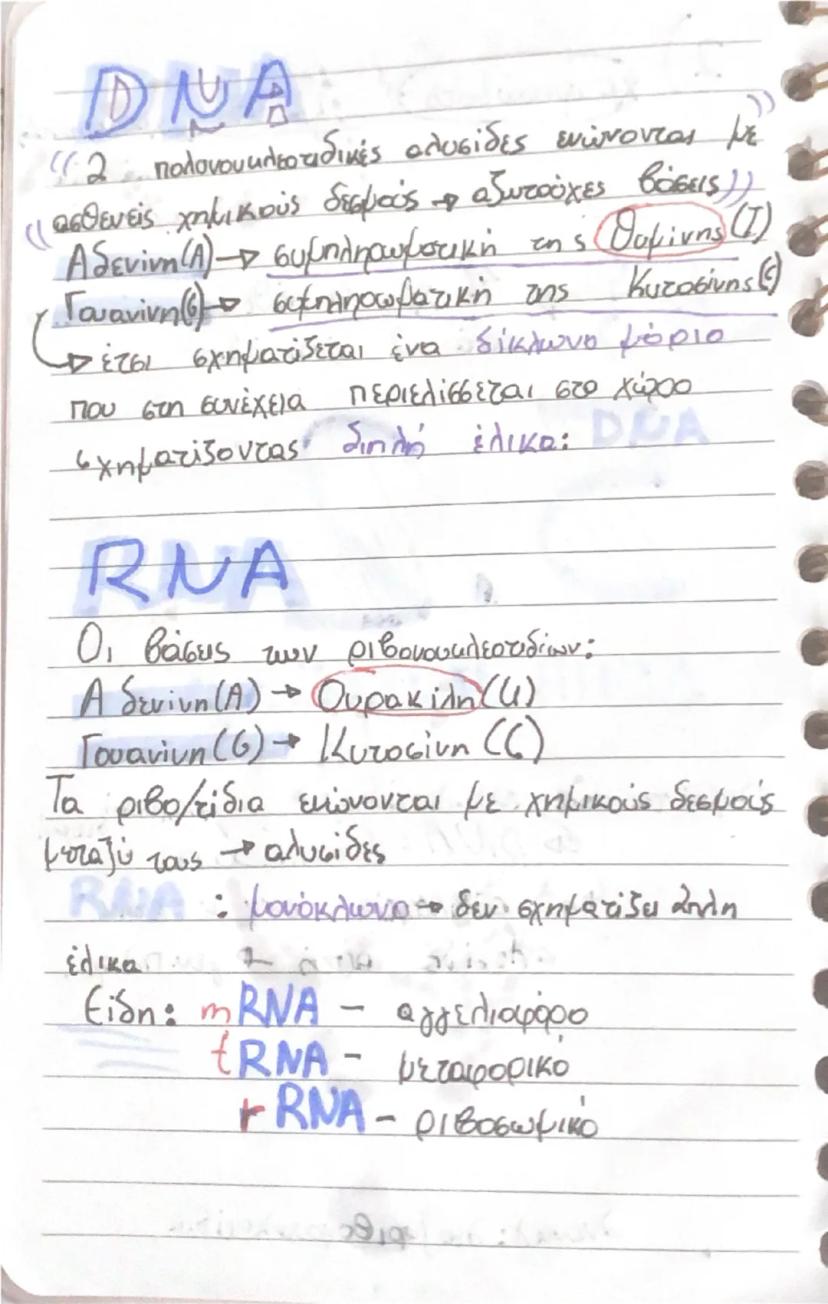 DNA
((2 πολυνουκλεοτιδικές αλυσίδες ενώνονται με))
((ασθενείς χημικούς δεσμούς → αζωτούχες βάσεις))
Αδενίνη(Α) → συμπληρωματική της Θυμίνης(Τ)
Γουανίνη(G) → συμπληρωματική της Κυτοσίνης(C)
→ έτσι σχηματίζεται ένα δίκλωνο μόριο
που στη συνέχεια περιελίσσεται στο χώρο
σχηματίζοντας διπλή έλικα: DNA
RNA
Οι βάσεις των ριβονουκλεοτιδίων:
Αδενίνη(Α) → Ουρακίλη(U)
Γουανίνη(G) → Κυτοσίνη(C)
Τα ριβο/τίδια ενώνονται με χημικούς δεσμούς
μεταξύ τους → αλυσίδες
RNA : μονόκλωνο → δεν σχηματίζει 2πλη
έλικα
Είδη: mRNA - αγγελιαφόρο
tRNA - μεταφορικό
rRNA - ριβοσωμικό